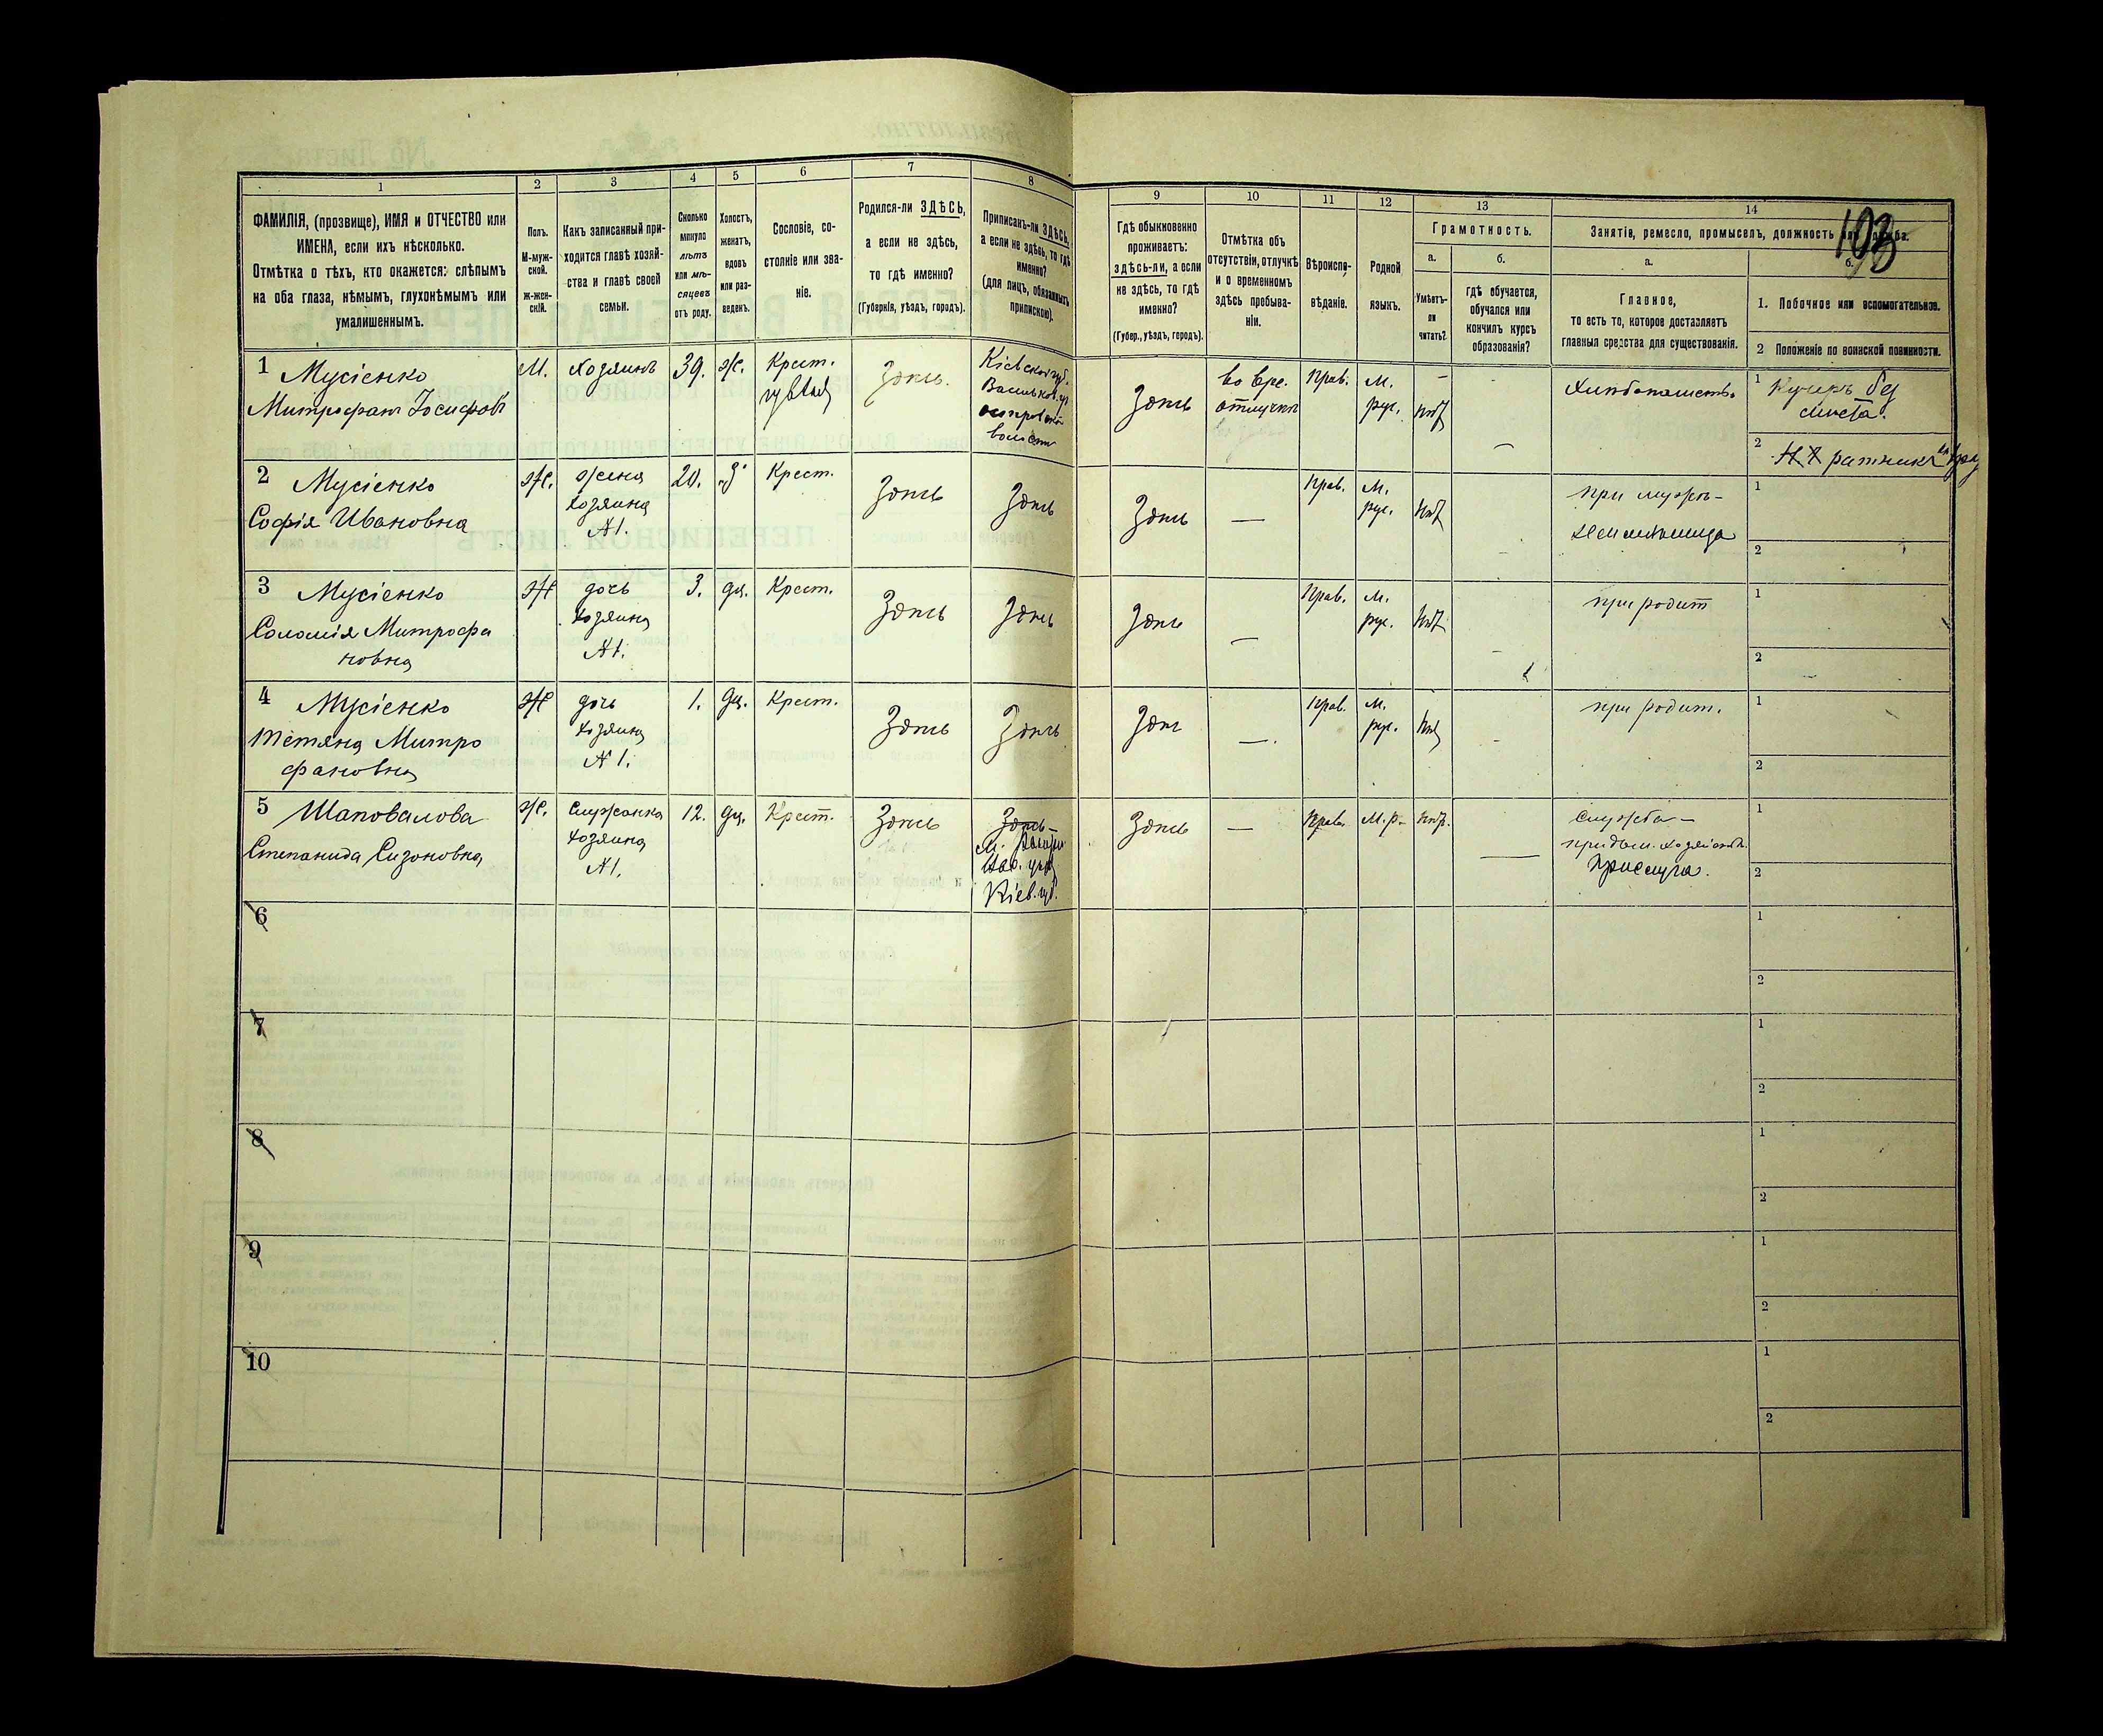 1
2
3
4
5
6
7
8
9
10
11
12
13
14
103
ФАМИЛІЯ, (прозвище), ИМЯ и ОТЧЕСТВО или
ИМЕНА, если ихъ нѣсколько.
Отмѣтка о тѣхъ, кто окажется: слѣпымъ
на оба глаза, нѣмымъ, глухонѣмымъ или
умалишеннымъ.
Полъ.
М-муж-
ской.
Ж-жен-
скій.
Какъ записанный при-
ходится главѣ хозяй-
ства и главѣ своей
семьи.
Сколько
минуло
лѣтъ
или мѣ-
сяцевъ
отъ роду.
Холостъ,
женатъ,
вдовъ
или раз-
веденъ.
Сословіе, со-
стояніе или зва-
ніе.
Родился-ли ЗДѢСЬ,
а если не здѣсь,
то гдѣ именно?
(Губернія, уѣздъ, городъ).
Приписанъ-ли ЗДѢСЬ,
а если не здѣсь, то гдѣ
именно?
(для лицъ, обязанныхъ
припискою).
Гдѣ обыкновенно
проживаетъ:
здѣсь-ли, а если
не здѣсь, то гдѣ
именно?
(Губер., уѣздъ, городъ).
Отмѣтка объ
отсутствіи, отлучкѣ
и о временномъ
здѣсь пребыва-
ніи.
Вѣроиспо-
вѣданіе.
Родной
языкъ.
Грамотность.
а.
Умѣетъ-
ли
читать?
б.
гдѣ обучается,
обучался или
кончилъ курсъ
образованія?
Занятіе, ремесло, промыселъ, должность или служба.
а.
Главное,
то есть то, которое доставляетъ
главныя средства для существованія.
б.
1. Побочное или вспомогательное.
2 Положеніе по воинской повинности.
1 Мусіенко
Митрофанъ Іосифовъ
М.
Хозяинъ
39.
ж.
Крест.
Здѣсь.
Кіевской губ.
Васильков. у.
волости
Здѣсь
во вре.
отлучкѣ
Прав.
М.
рус.
нѣт
—
Хлѣбопашество
1 Кучеръ без
мѣста.
2 ратникъ
2 Мусіенко
Софія Ивановна
ж.
жена
хозяина
№1.
20.
з
Крест.
Здѣсь
Здѣсь
Здѣсь
—
Прав.
М.
рус.
нѣт
при мужѣ-
1
2
3 Мусіенко
Соломія Митрофа
новна
ж
дочь
хозяина
№1.
3.
дѣ.
Крест.
Здѣсь
Здѣсь
Здѣсь
—
Прав.
М.
рус.
нѣт
при родит
1
2
4 Мусіенко
Тетяна Митро
фановна
ж
дочь
хозяина
№1.
1.
дѣ.
Крест.
Здѣсь
Здѣсь
Здѣс
—.
Прав.
М.
рус.
нѣт
при родит.
1
2
5 Шаповалова
Степанида Сизоновна
ж.
служанка
хозяина
№1.
12.
дѣ.
Крест.
Здѣсь
Здѣсь
Вас. уѣз
Кіев. губ.
Здѣсь
—
Прав.
М.р.
нѣт.
—
служба —
при дом. хозяйств.
Прислуга.
1
2
6
1
2
7
1
2
8
1
2
9
1
2
10
1
2